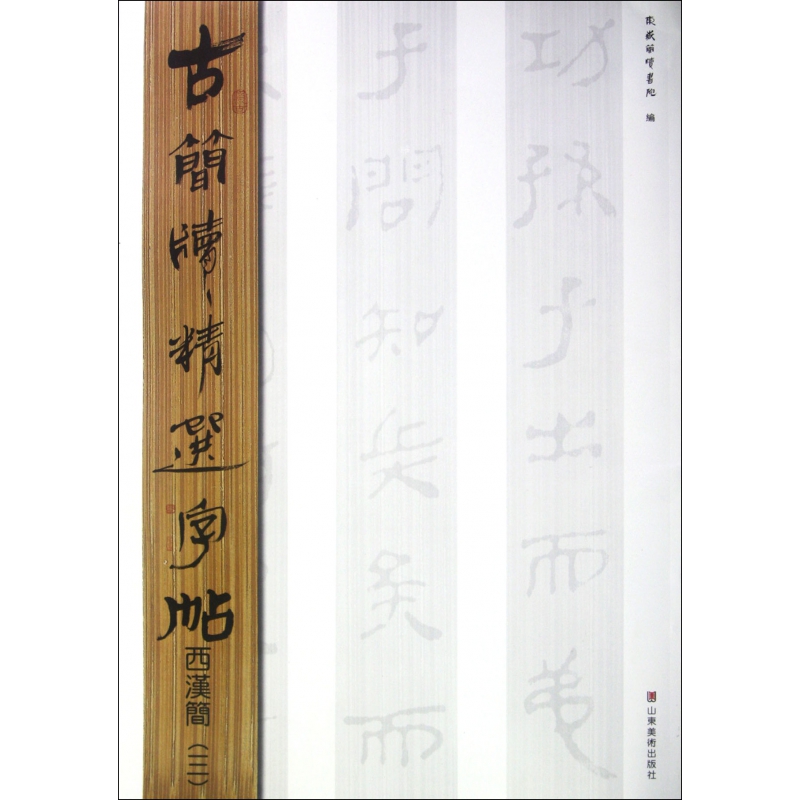 簡牘書院 編
功孫子出而弟
子問知兵矣而
古簡牘精選字帖
西漢簡（三）
山東美術出版社